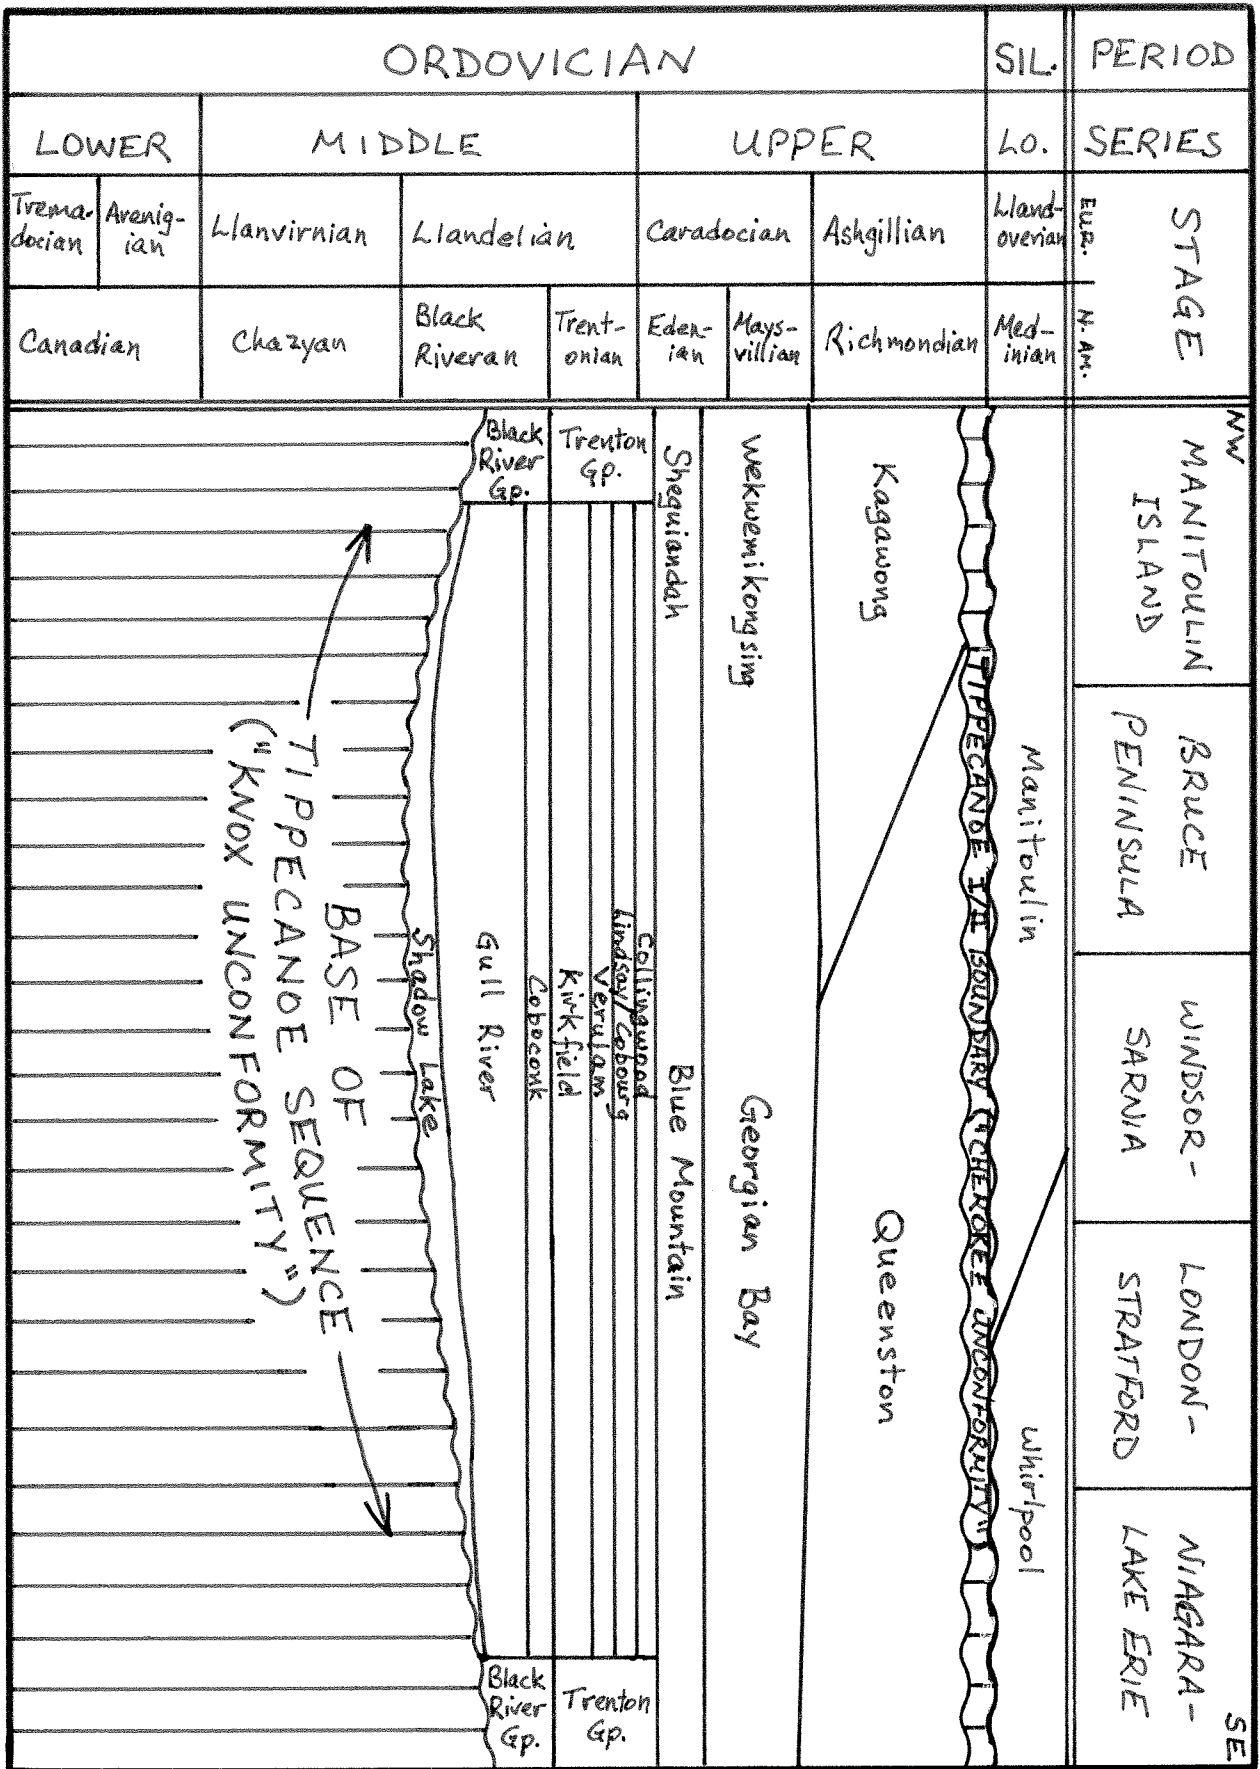 ORDOVICIAN
SIL.
PERIOD
LOWER
MIDDLE
UPPER
LO.
SERIES
Trema-
docian
Arenig-
ian
Llanvirnian
Llandelian
Caradocian
Ashgillian
Lland-
overian
EUR.
STAGE
Canadian
Chazyan
Black
Riveran
Trent-
onian
Eden-
ian
Mays-
villian
Richmondian
Med-
inian
N. AM.
NW
MANITOULIN
ISLAND
BRUCE
PENINSULA
WINDSOR-
SARNIA
LONDON-
STRATFORD
NIAGARA-
LAKE ERIE
SE
Manitoulin
Whirlpool
TIPPECANOE I/II BOUNDARY ("CHEROKEE UNCONFORMITY")
Kagawong
Queenston
Wekwemikongsing
Georgian Bay
Sheguiandah
Blue Mountain
Black
River
Gp.
Trenton
Gp.
Collingwood
Lindsay/Cobourg
Verulam
Kirkfield
Coboconk
Gull River
Shadow Lake
BASE OF
TIPPECANOE SEQUENCE
("KNOX UNCONFORMITY")
Black
River
Gp.
Trenton
Gp.